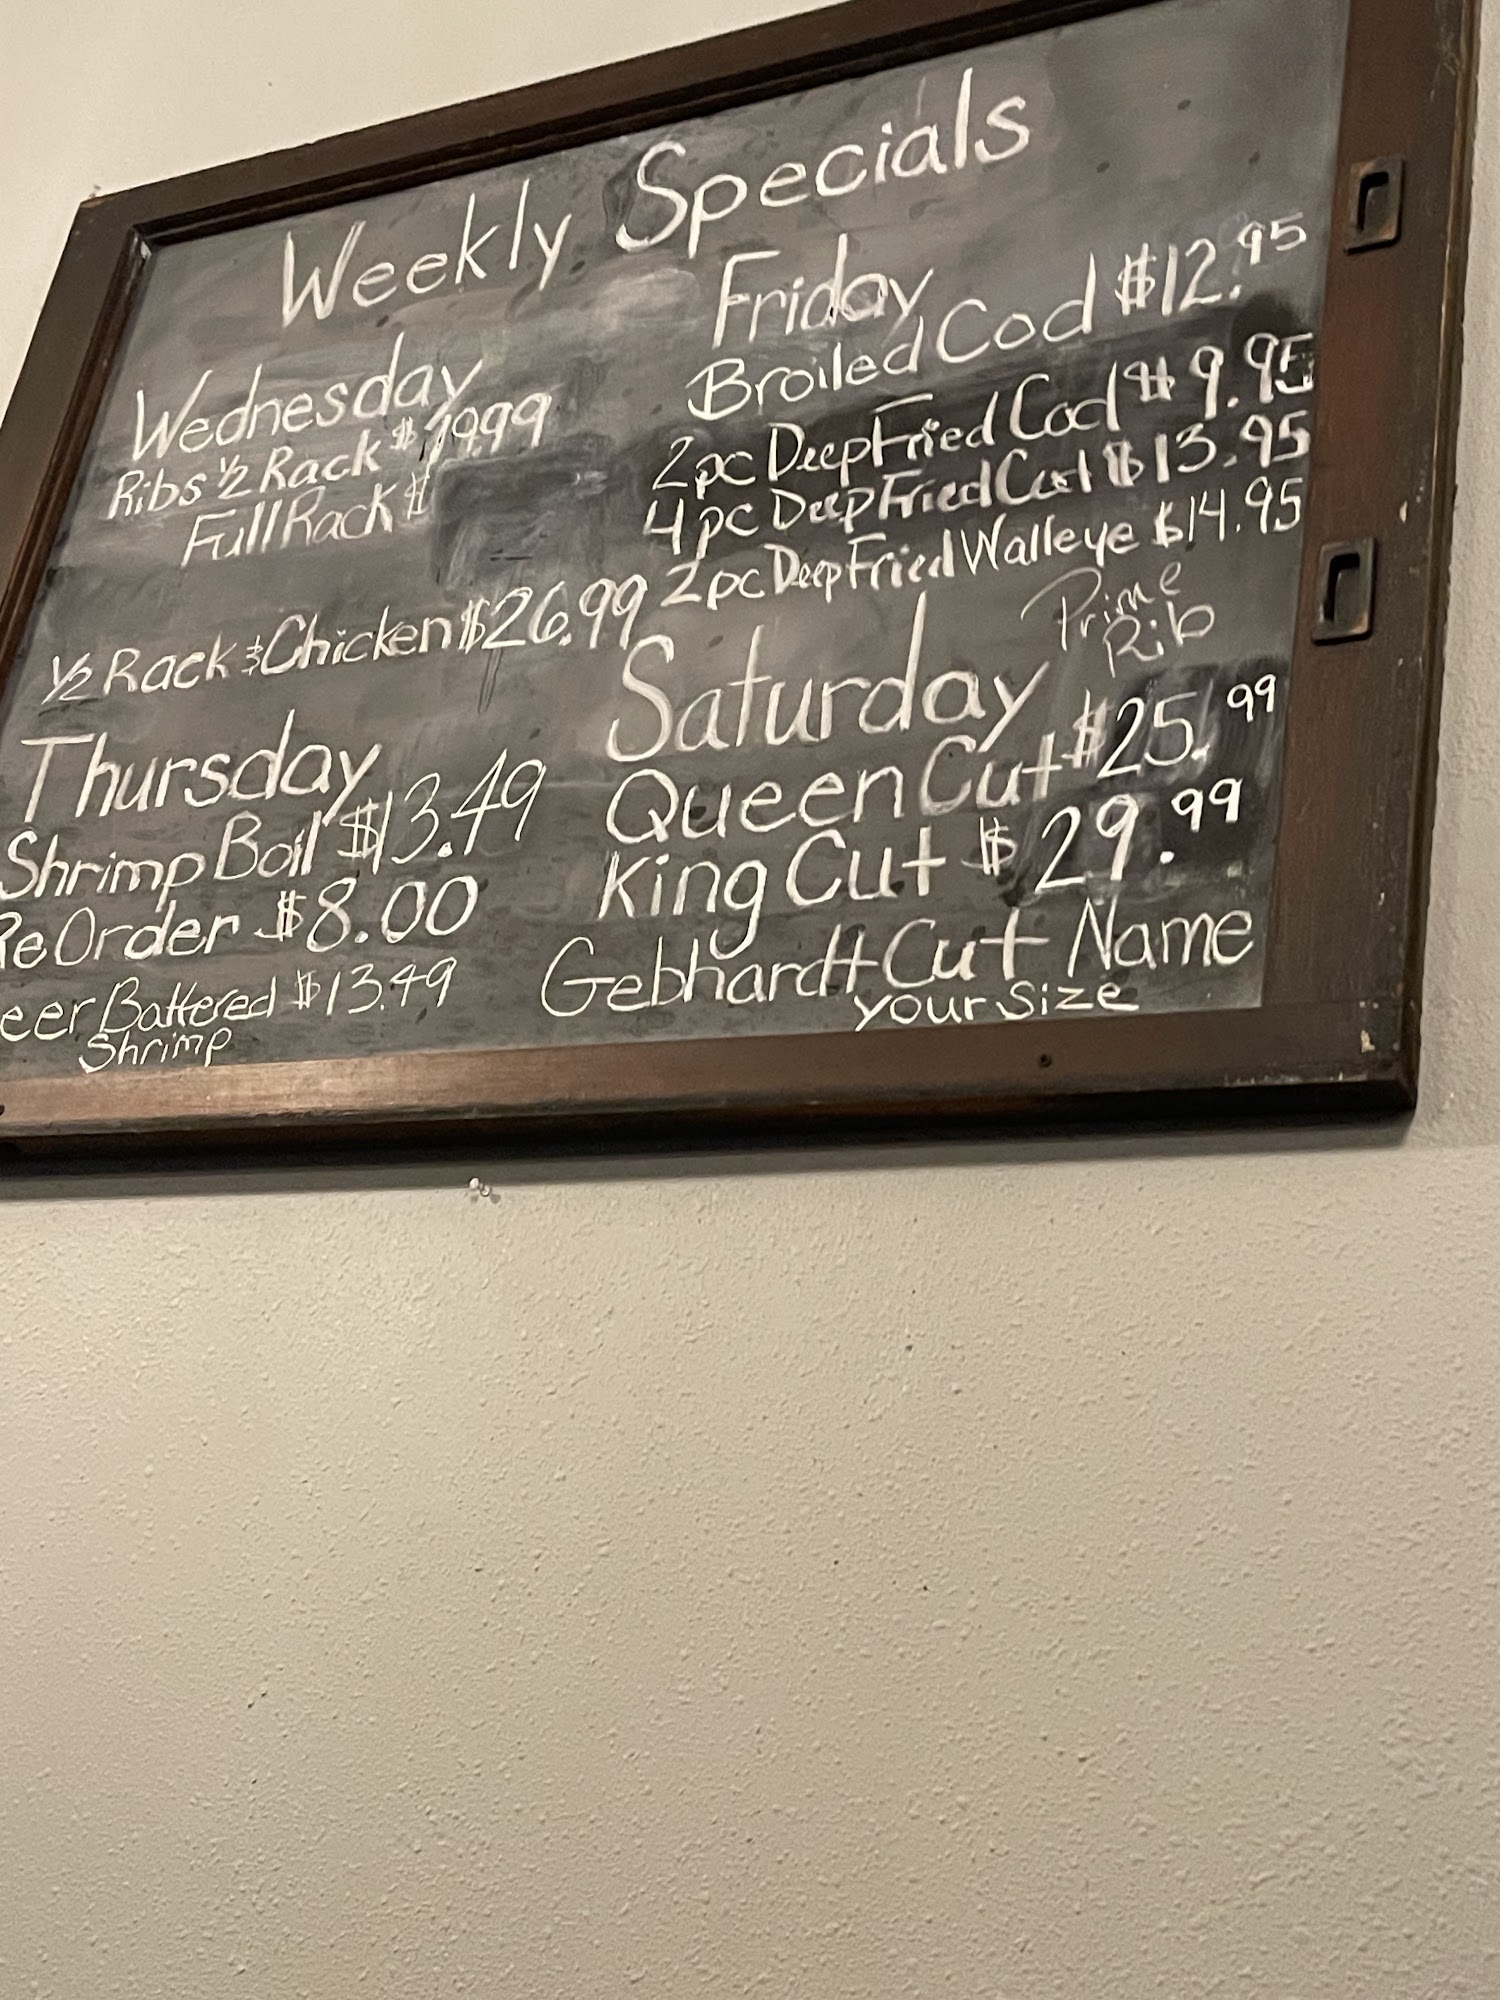 Weekly Specials
Wednesday
Ribs ½ Rack $19.99
Full Rack $
½ Rack & Chicken $26.99
Thursday
Shrimp Boil $13.49
ReOrder $8.00
eer Battered $13.49
Shrimp
Friday
Broiled Cod $12.95
2pc Deep Fried Cod $9.95
4pc Deep Fried Cod $13.95
2pc Deep Fried Walleye $14.95
Saturday
Prime
Rib
Queen Cut $25.99
King Cut $29.99
Gebhardt Cut Name
your size